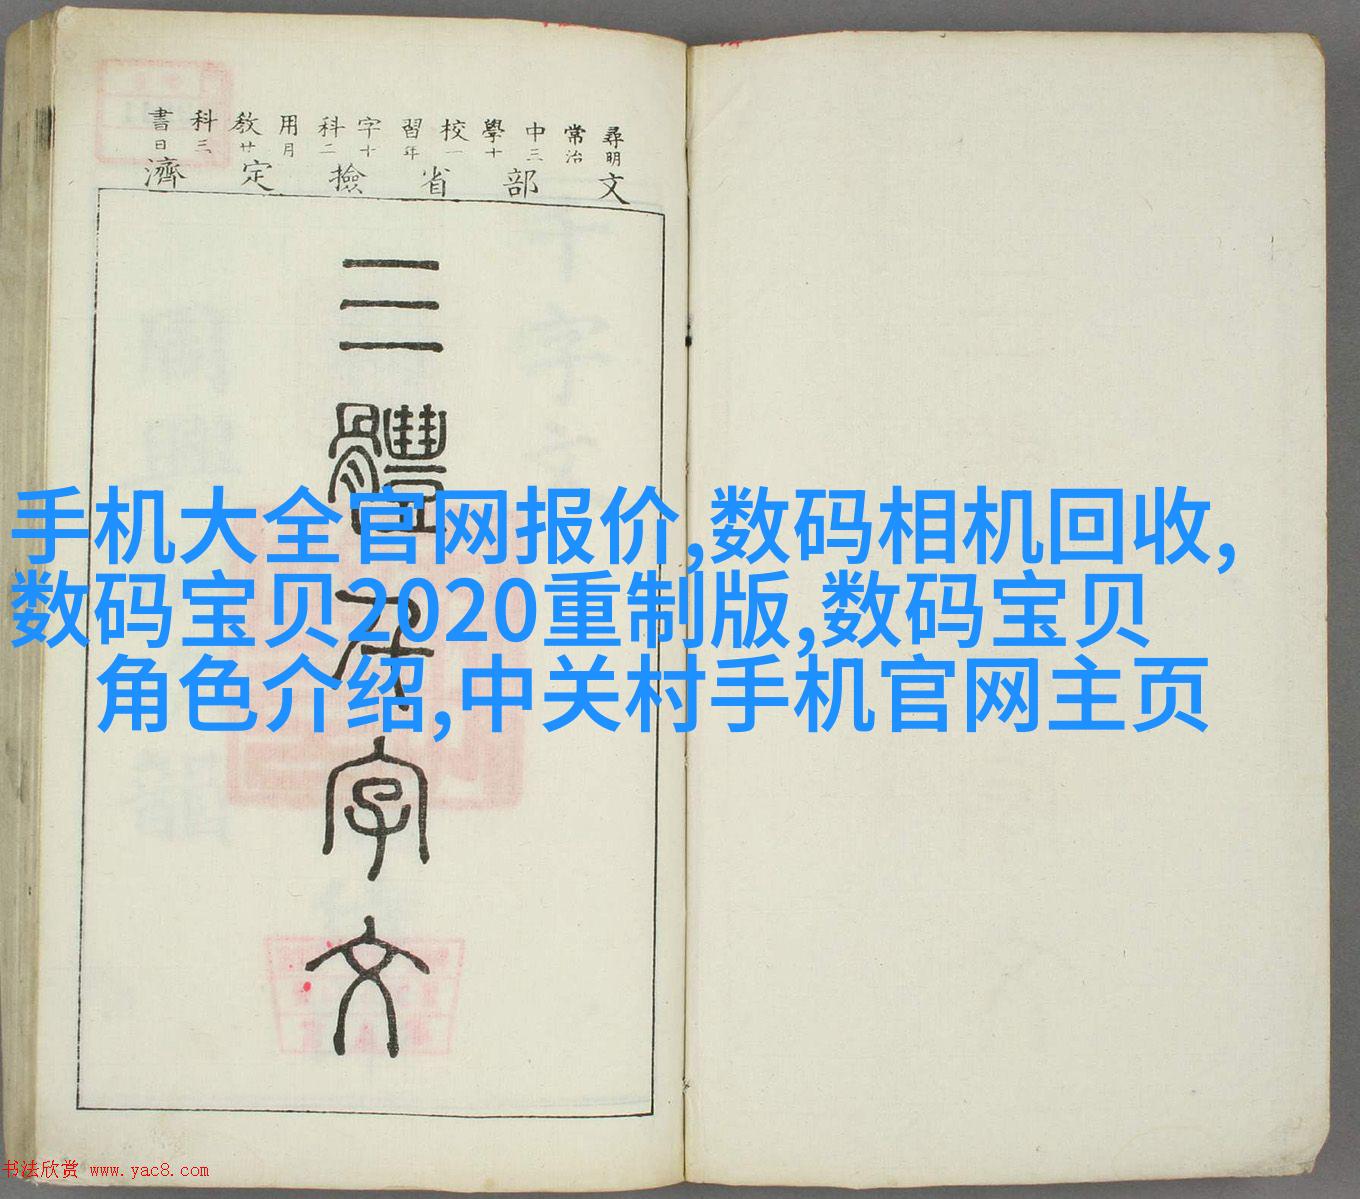 尋常中學校習字科用教科書
明治三十一年十二月廿三日
文部省撿定濟
三體千字文
手机大全官网报价,数码相机回收,
数码宝贝2020重制版,数码宝贝
角色介绍,中关村手机官网主页
书法欣赏 www.yac8.com